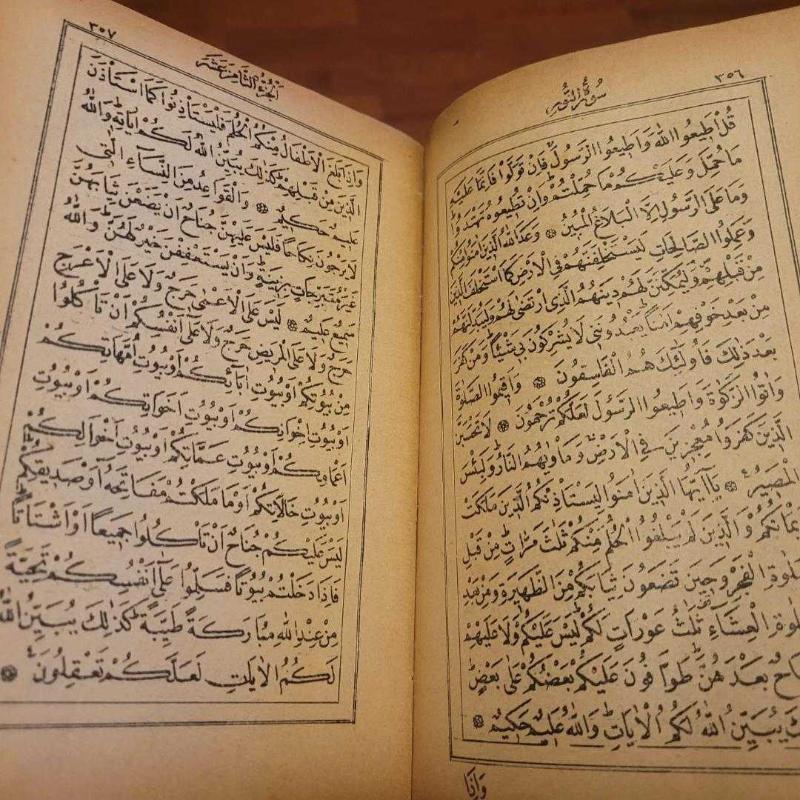 ٣٥٦
سورة النور
قُلْ اَطِيعُوا اللّٰهَ وَاَطِيعُوا الرَّسُولَ فَاِنْ تَوَلَّوْا فَاِنَّمَا عَلَيْهِ
مَا حُمِّلَ وَعَلَيْكُمْ مَا حُمِّلْتُمْ وَاِنْ تُطِيعُوهُ تَهْتَدُوا
وَمَا عَلَى الرَّسُولِ اِلَّا الْبَلَاغُ الْمُبِينُ وَعَدَ اللّٰهُ الَّذِينَ اٰمَنُوا مِنْكُمْ
وَعَمِلُوا الصَّالِحَاتِ لَيَسْتَخْلِفَنَّهُمْ فِي الْاَرْضِ كَمَا اسْتَخْلَفَ الَّذِينَ
مِنْ قَبْلِهِمْ وَلَيُمَكِّنَنَّ لَهُمْ دِينَهُمُ الَّذِي ارْتَضٰى لَهُمْ وَلَيُبَدِّلَنَّهُمْ
مِنْ بَعْدِ خَوْفِهِمْ اَمْنًا يَعْبُدُونَنِي لَا يُشْرِكُونَ بِي شَيْئًا وَمَنْ كَفَرَ
بَعْدَ ذٰلِكَ فَاُولٰئِكَ هُمُ الْفَاسِقُونَ وَاَقِيمُوا الصَّلٰوةَ
وَاٰتُوا الزَّكٰوةَ وَاَطِيعُوا الرَّسُولَ لَعَلَّكُمْ تُرْحَمُونَ لَا تَحْسَبَنَّ
الَّذِينَ كَفَرُوا مُعْجِزِينَ فِي الْاَرْضِ وَمَاْوٰيهُمُ النَّارُ وَلَبِئْسَ
الْمَصِيرُ يَا اَيُّهَا الَّذِينَ اٰمَنُوا لِيَسْتَاْذِنْكُمُ الَّذِينَ مَلَكَتْ
اَيْمَانُكُمْ وَالَّذِينَ لَمْ يَبْلُغُوا الْحُلُمَ مِنْكُمْ ثَلٰثَ مَرَّاتٍ مِنْ قَبْلِ
صَلٰوةِ الْفَجْرِ وَحِينَ تَضَعُونَ ثِيَابَكُمْ مِنَ الظَّهِيرَةِ وَمِنْ بَعْدِ
صَلٰوةِ الْعِشَاءِ ثَلٰثُ عَوْرَاتٍ لَكُمْ لَيْسَ عَلَيْكُمْ وَلَا عَلَيْهِمْ
جُنَاحٌ بَعْدَهُنَّ طَوَّافُونَ عَلَيْكُمْ بَعْضُكُمْ عَلٰى بَعْضٍ
كَذٰلِكَ يُبَيِّنُ اللّٰهُ لَكُمُ الْاٰيَاتِ وَاللّٰهُ عَلِيمٌ حَكِيمٌ
وَاِذَا
٣٥٧
الجزء الثامن عشر
وَاِذَا بَلَغَ الْاَطْفَالُ مِنْكُمُ الْحُلُمَ فَلْيَسْتَاْذِنُوا كَمَا اسْتَاْذَنَ
الَّذِينَ مِنْ قَبْلِهِمْ كَذٰلِكَ يُبَيِّنُ اللّٰهُ لَكُمْ اٰيَاتِهِ وَاللّٰهُ
عَلِيمٌ حَكِيمٌ وَالْقَوَاعِدُ مِنَ النِّسَاءِ الّٰتِي
لَا يَرْجُونَ نِكَاحًا فَلَيْسَ عَلَيْهِنَّ جُنَاحٌ اَنْ يَضَعْنَ ثِيَابَهُنَّ
غَيْرَ مُتَبَرِّجَاتٍ بِزِينَةٍ وَاَنْ يَسْتَعْفِفْنَ خَيْرٌ لَهُنَّ وَاللّٰهُ
سَمِيعٌ عَلِيمٌ لَيْسَ عَلَى الْاَعْمٰى حَرَجٌ وَلَا عَلَى الْاَعْرَجِ
حَرَجٌ وَلَا عَلَى الْمَرِيضِ حَرَجٌ وَلَا عَلٰى اَنْفُسِكُمْ اَنْ تَاْكُلُوا
مِنْ بُيُوتِكُمْ اَوْ بُيُوتِ اٰبَائِكُمْ اَوْ بُيُوتِ اُمَّهَاتِكُمْ
اَوْ بُيُوتِ اِخْوَانِكُمْ اَوْ بُيُوتِ اَخَوَاتِكُمْ اَوْ بُيُوتِ
اَعْمَامِكُمْ اَوْ بُيُوتِ عَمَّاتِكُمْ اَوْ بُيُوتِ اَخْوَالِكُمْ
اَوْ بُيُوتِ خَالَاتِكُمْ اَوْ مَا مَلَكْتُمْ مَفَاتِحَهُ اَوْ صَدِيقِكُمْ
لَيْسَ عَلَيْكُمْ جُنَاحٌ اَنْ تَاْكُلُوا جَمِيعًا اَوْ اَشْتَاتًا
فَاِذَا دَخَلْتُمْ بُيُوتًا فَسَلِّمُوا عَلٰى اَنْفُسِكُمْ تَحِيَّةً
مِنْ عِنْدِ اللّٰهِ مُبَارَكَةً طَيِّبَةً كَذٰلِكَ يُبَيِّنُ اللّٰهُ
لَكُمُ الْاٰيَاتِ لَعَلَّكُمْ تَعْقِلُونَ